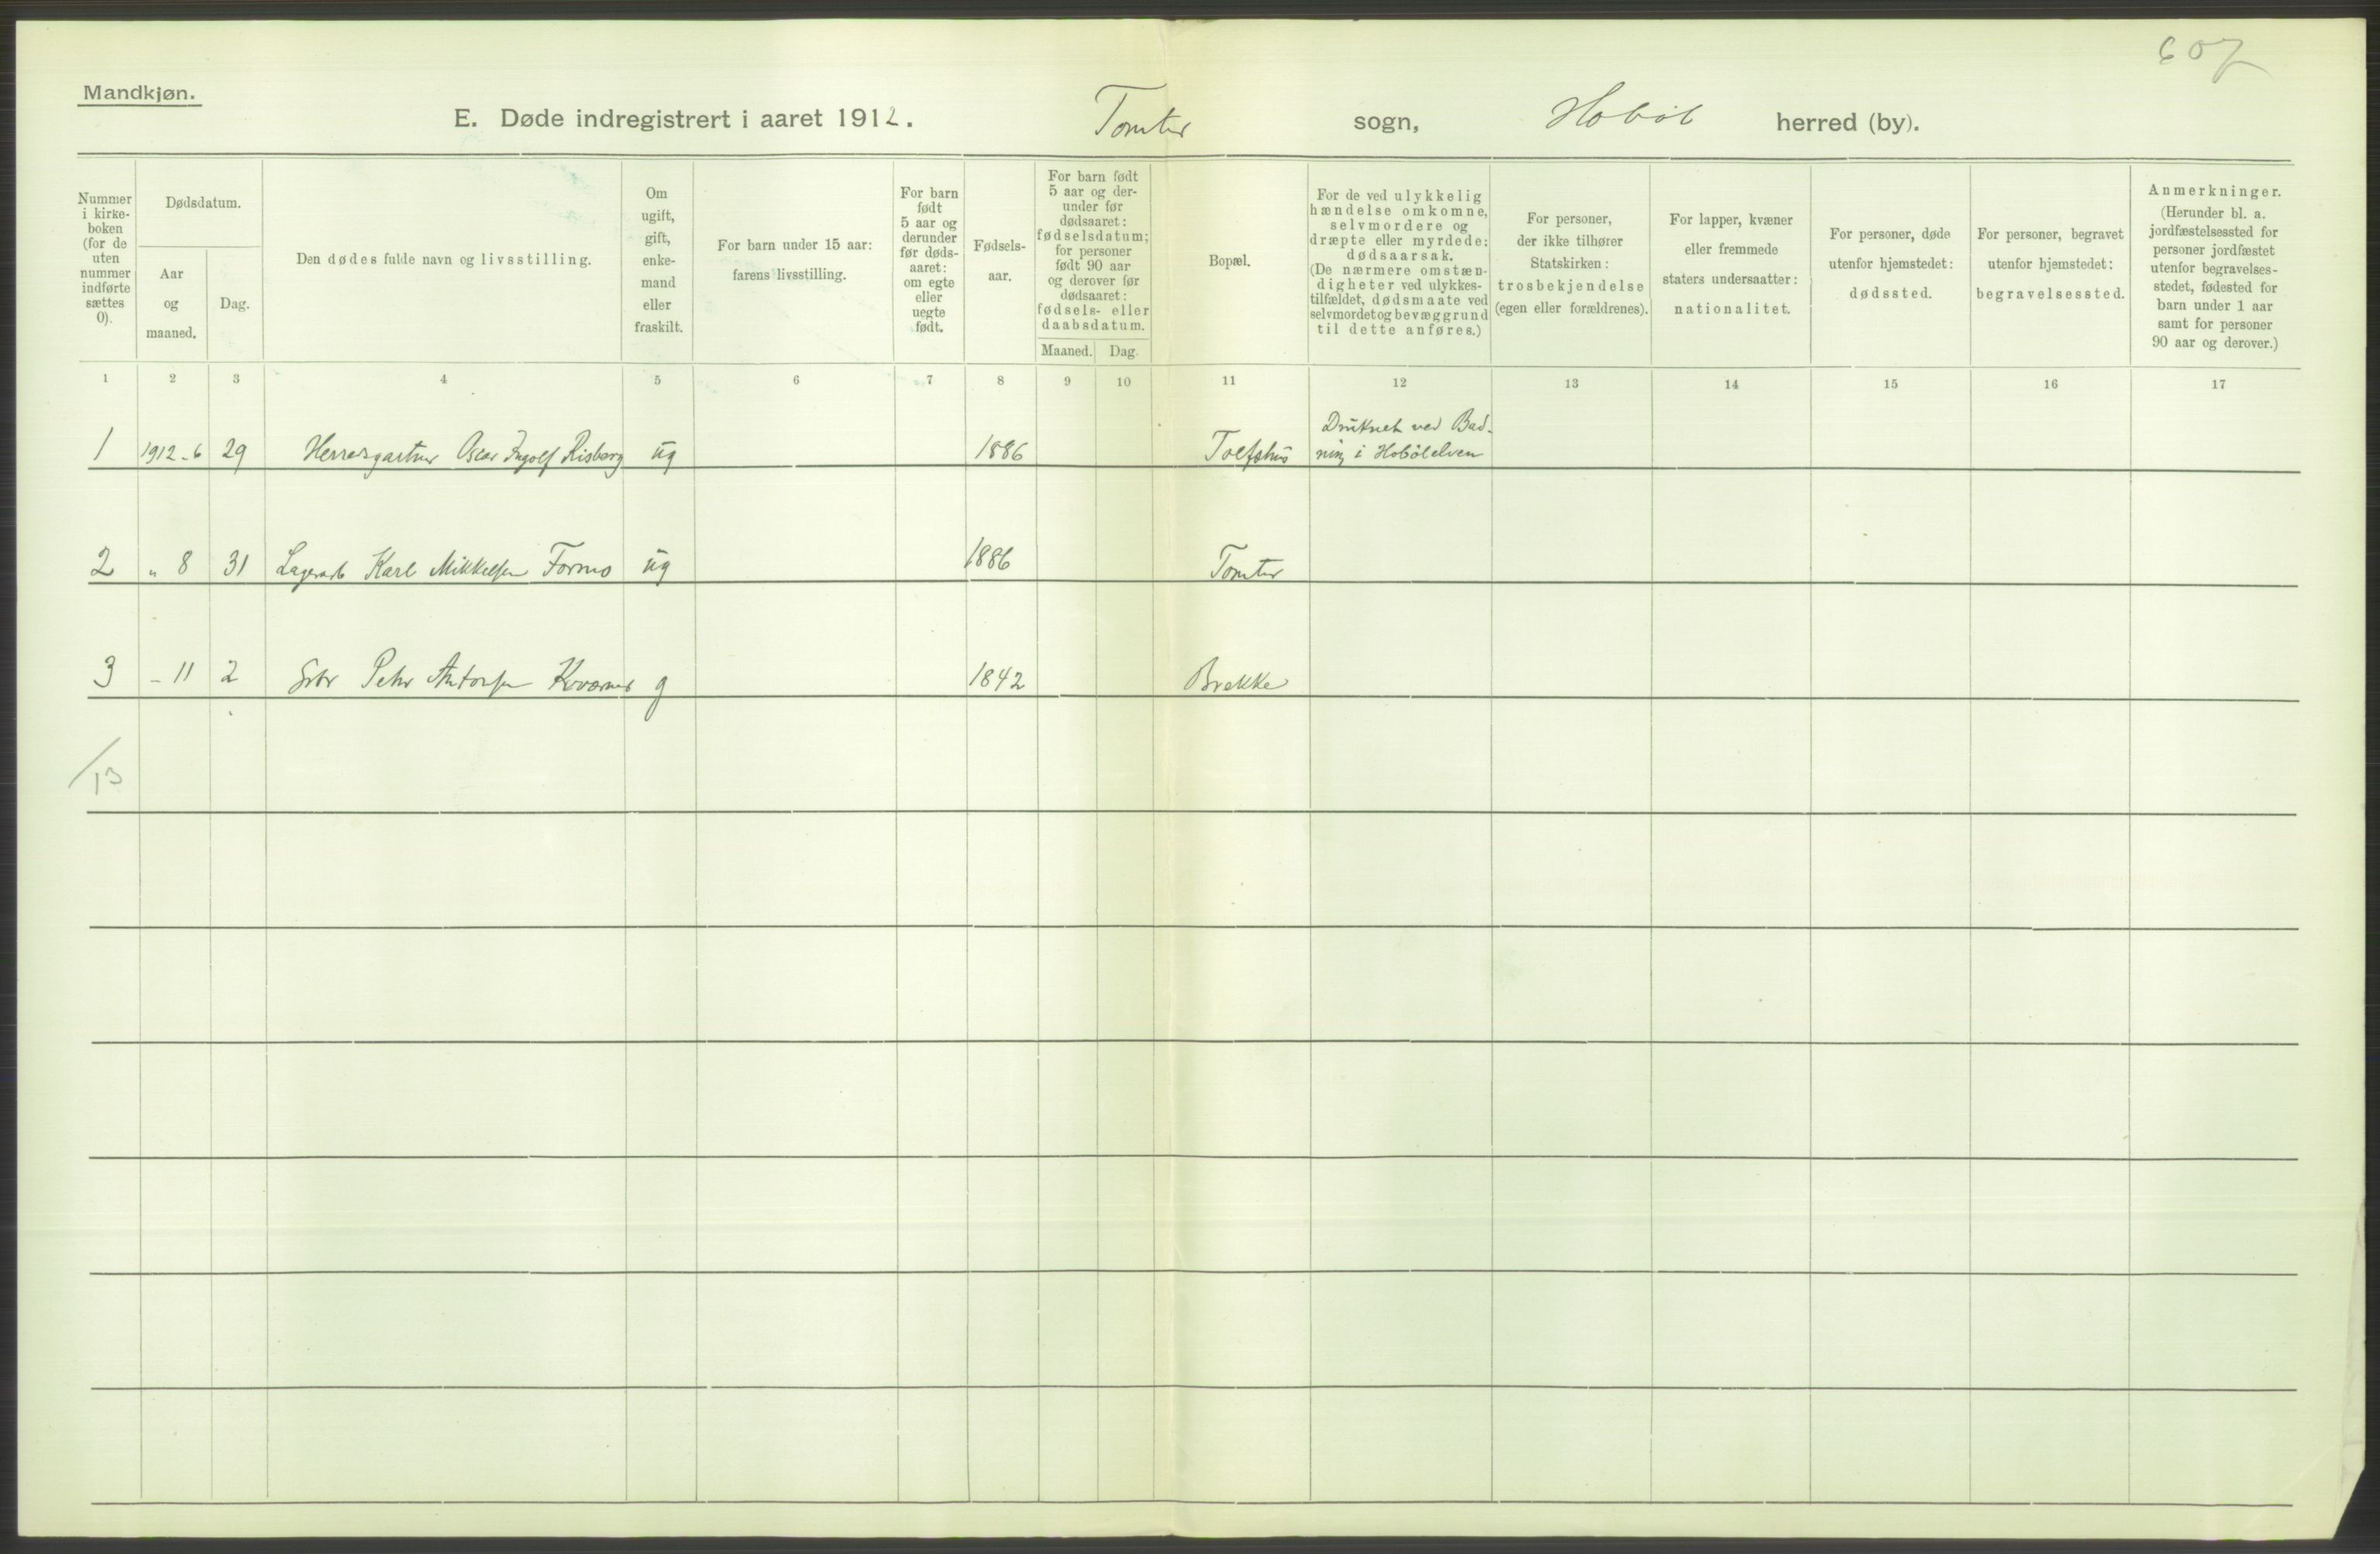 607
Mandkjøn.
E. Døde indregistrert i aaret 1912. Tomter sogn, Hobøl herred (by).
Nummer
i kirke-
boken
(for de
uten
nummer
indførte
sættes
0).
Dødsdatum.
Aar
og
maaned.
Dag.
Den dødes fulde navn og livsstilling.
Om
ugift,
gift,
enke-
mand
eller
fraskilt.
For barn under 15 aar:
farens livsstilling.
For barn
født
5 aar og
derunder
før døds-
aaret:
om egte
eller
uegte
født.
Fødsels-
aar.
For barn født
5 aar og der-
under før
dødsaaret:
fødselsdatum;
for personer
født 90 aar
og derover før
dødsaaret:
fødsels- eller
daabsdatum.
Maaned. Dag.
Bopæl.
For de ved ulykkelig
hændelse omkomne,
selvmordere og
dræpte eller myrdede:
dødsaarsak.
(De nærmere omstæn-
digheter ved ulykkes-
tilfældet, dødsmaate ved
selvmordet og bevæggrund
til dette anføres.)
For personer,
der ikke tilhører
Statskirken:
trosbekjendelse
(egen eller forældrenes).
For lapper, kvæner
eller fremmede
staters undersaatter:
nationalitet.
For personer, døde
utenfor hjemstedet:
dødssted.
For personer, begravet
utenfor hjemstedet:
begravelsessted.
Anmerkninger.
(Herunder bl. a.
jordfæstelsessted for
personer jordfæstet
utenfor begravelses-
stedet, fødested for
barn under 1 aar
samt for personer
90 aar og derover.)
1 2 3 4 5 6 7 8 9 10 11 12 13 14 15 16 17
Druknet ved Bad-
1 1912-6 29 Herredsgartner Oscar Ingolf Risberg ug 1886 ning i Hobølelven
2 " 8 31 Karl Mikkelsen Formo ug 1886 Tomter
3 - 11 2 Peter g 1842 Brekke
/13